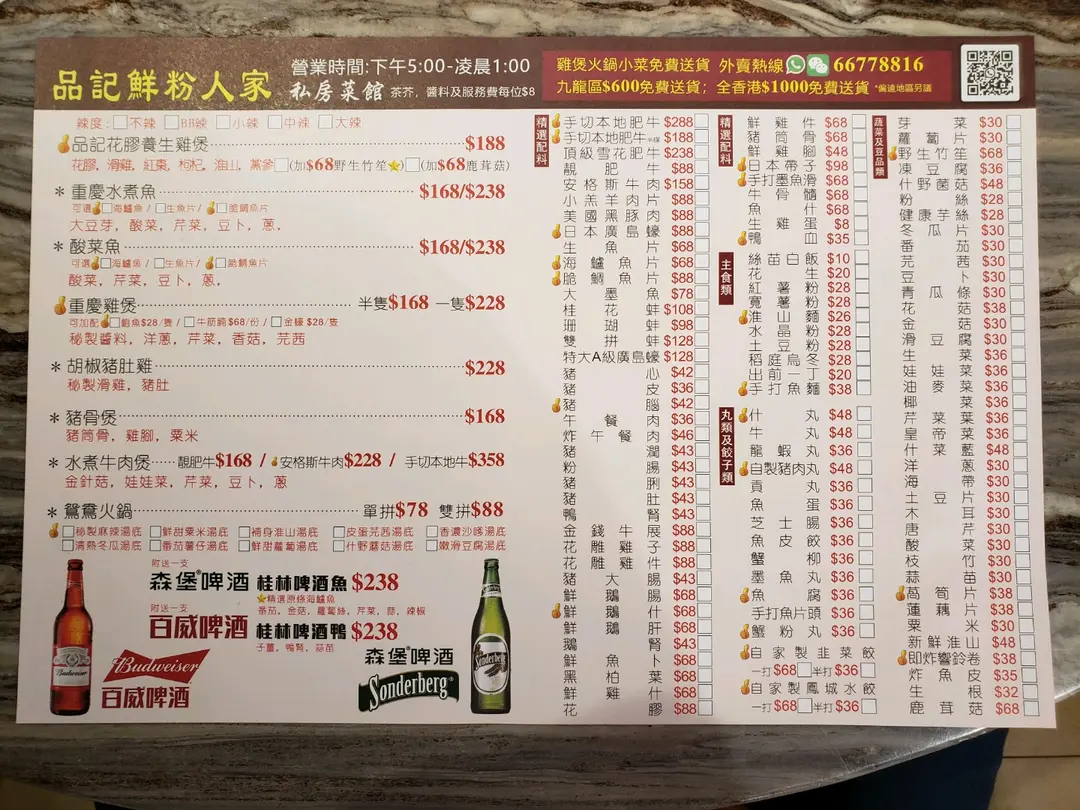 品記鮮粉人家
營業時間:下午5:00-凌晨1:00
私房菜館 茶芥，醬料及服務費每位$8
雞煲火鍋小菜免費送貨 外賣熱線 66778816
九龍區$600免費送貨；全香港$1000免費送貨 *偏遠地區另議
辣度: 不辣 BB辣 小辣 中辣 大辣
品記花膠養生雞煲 $188
花膠，滑雞，紅棗，枸杞，淮山，黨參 (加$68野生竹笙) (加$68鹿茸菇)
* 重慶水煮魚 $168/$238
可選 海鱸魚 / 生魚片 / 脆鯛魚片
大豆芽，酸菜，芹菜，豆卜，蔥，
* 酸菜魚 $168/$238
可選 海鱸魚 / 生魚片 / 脆鯛魚片
酸菜，芹菜，豆卜，蔥，
重慶雞煲 半隻$168 一隻$228
可加配 鮑魚$28/隻 / 牛筋腩$68/份 / 金蠔 $28/隻
秘製醬料，洋蔥，芹菜，香菇，芫茜
* 胡椒豬肚雞 $228
秘製滑雞，豬肚
* 豬骨煲 $168
豬筒骨，雞腳，粟米
* 水煮牛肉煲 靚肥牛$168 / 安格斯牛肉$228 / 手切本地牛$358
金針菇，娃娃菜，芹菜，豆卜，蔥
* 鴛鴦火鍋 單拼$78 雙拼$88
秘製麻辣湯底 鮮甜粟米湯底 補身淮山湯底 皮蛋芫茜湯底 香濃沙嗲湯底
清熱冬瓜湯底 番茄薯仔湯底 鮮甜蘿蔔湯底 什野蘑菇湯底 嫩滑豆腐湯底
附送一支
森堡啤酒 桂林啤酒魚 $238
精選原條海鱸魚
番茄，金菇，蘿蔔絲，芹菜，蒜，辣椒
附送一支
百威啤酒 桂林啤酒鴨 $238
子薑，鴨腎，蒜苗
Budweiser
百威啤酒
森堡啤酒
Sonderberg
Budweiser
Sonderberg
精選配料
手切本地肥牛 $288
手切本地肥牛 $168
頂級雪花肥牛 $238
靚肥牛 $88
安格斯牛肉 $158
小羔羊肉片 $88
美國黑豚肉 $88
日本廣島蠔 $88
生魚片 $68
海鱸魚片 $68
脆鯛魚片 $88
大墨魚 $78
桂花蚌 $108
珊瑚蚌 $98
雙拼蚌 $128
特大A級廣島蠔 $128
豬心 $42
豬皮 $36
豬腦 $42
午餐肉 $36
炸午餐肉 $46
豬潤 $43
粉腸 $43
豬脷 $43
豬肚 $43
鴨腎 $43
金錢牛展 $88
花雕雞子 $88
花雕雞件 $88
豬大腸 $43
鮮鵝腸 $68
鮮鵝什 $68
鮮鵝肝 $68
鵝腎 $43
鮮魚卜 $68
黑柏葉 $68
鮮雞什 $68
花膠 $88
精選配料
鮮雞件 $68
豬筒骨 $68
鮮雞腳 $48
日本帶子 $98
手打墨魚滑 $68
牛骨髓 $68
魚什 $68
生雞蛋 $8
鴨血 $35
主食類
絲苗白飯 $10
花生 $20
紅薯粉 $28
寬薯粉 $28
淮山麵 $26
水晶粉 $28
土豆粉 $28
稻庭烏冬 $28
出前一丁 $20
手打魚麵 $38
丸類及餃子類
什丸 $48
牛丸 $48
龍蝦丸 $36
自製豬肉丸 $48
貢丸 $36
魚蛋 $36
芝士腸 $36
魚皮餃 $36
蟹柳 $36
墨魚丸 $36
魚腐 $36
手打魚片頭 $36
蟹粉丸 $36
自家製韭菜餃
一打$68 半打$36
自家製鳳城水餃
一打$68 半打$36
蔬菜及豆品類
芽菜 $30
蘿蔔片 $30
野生竹笙 $68
凍豆腐 $36
什野菌菇 $48
粉絲 $28
健康芋絲 $28
冬瓜片 $30
番茄 $30
芫茜 $30
豆卜 $30
青瓜條 $30
花菇 $38
金菇 $30
滑豆腐 $30
生菜 $36
娃娃菜 $36
油麥菜 $36
椰菜 $36
芹菜葉 $36
皇帝菜 $36
什菜藍 $48
洋蔥 $30
海帶 $30
土豆片 $30
木耳 $30
唐芹 $30
酸菜 $30
枝竹 $30
蒜苗 $30
萵筍片 $38
蓮藕片 $38
粟米 $30
新鮮淮山 $48
即炸響鈴卷 $38
炸魚皮 $35
生根 $32
鹿茸菇 $68